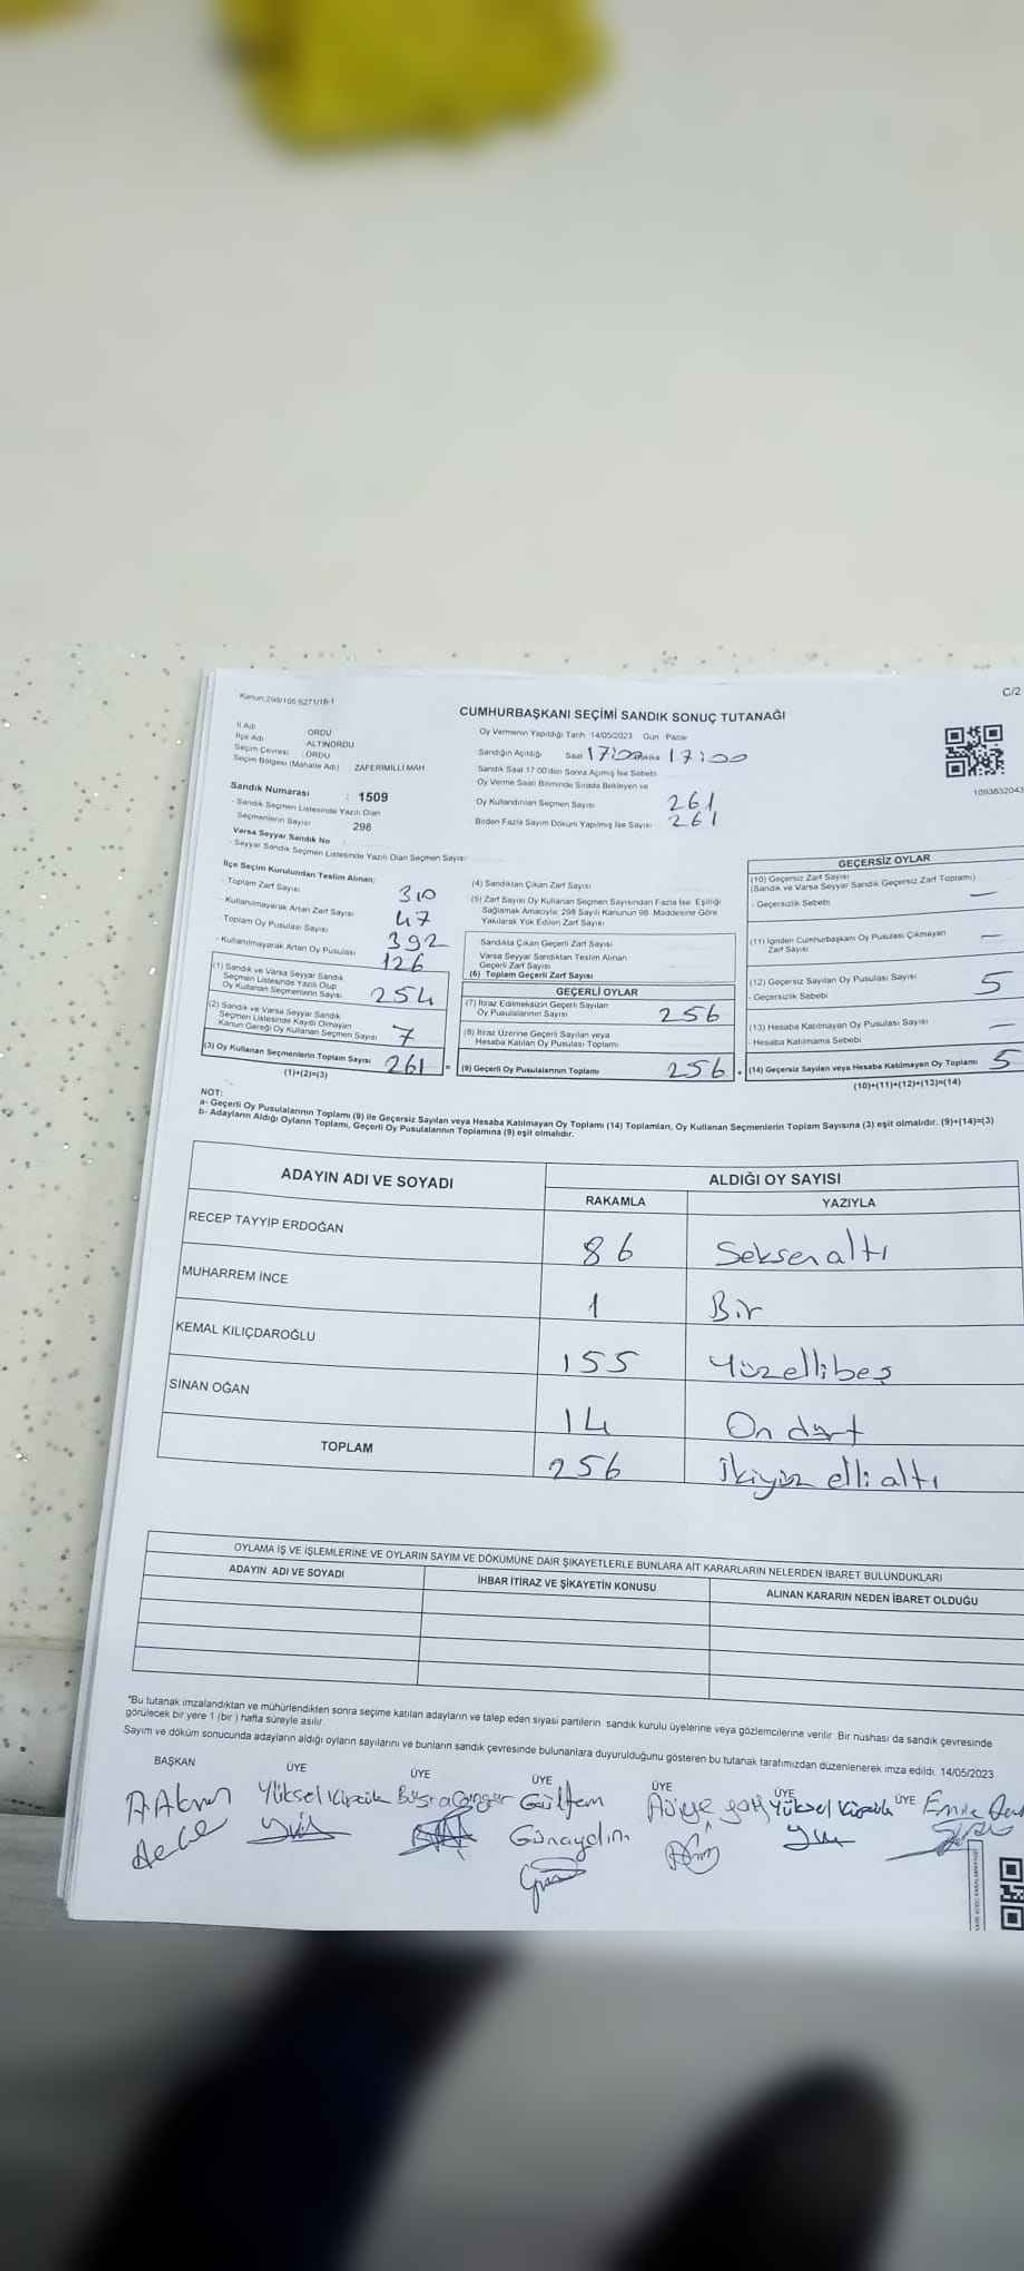 Kanun:298/105 6271/18-1
C/2
CUMHURBAŞKANI SEÇİMİ SANDIK SONUÇ TUTANAĞI
İl Adı : ORDU
İlçe Adı : ALTINORDU
Seçim Çevresi : ORDU
Seçim Bölgesi (Mahalle Adı) : ZAFERİMİLLİ MAH.
Sandık Numarası : 1509
- Sandık Seçmen Listesinde Yazılı Olan
Seçmenlerin Sayısı : 298
Varsa Seyyar Sandık No :
- Seyyar Sandık Seçmen Listesinde Yazılı Olan Seçmen Sayısı
Oy Vermenin Yapıldığı Tarih 14/05/2023 Gün Pazar
Sandığın Açıldığı Saat 17:00 17:00
Sandık Saat 17:00'den Sonra Açılmış İse Sebebi
Oy Verme Saati Bitiminde Sırada Bekleyen ve
Oy Kullandırılan Seçmen Sayısı 261
Birden Fazla Sayım Dökum Yapılmış İse Sayısı 261
1093832043
İlçe Seçim Kurulundan Teslim Alınan:
- Toplam Zarf Sayısı 310
- Kullanılmayarak Artan Zarf Sayısı 47
Toplam Oy Pusulası Sayısı 392
- Kullanılmayarak Artan Oy Pusulası 126
(1) Sandık ve Varsa Seyyar Sandık
Seçmen Listesinde Yazılı Olup
Oy Kullanan Seçmenlerin Sayısı 254
(2) Sandık ve Varsa Seyyar Sandık
Seçmen Listesinde Kaydı Olmayan
Kanun Gereği Oy Kullanan Seçmen Sayısı 7
(3) Oy Kullanan Seçmenlerin Toplam Sayısı 261
(1)+(2)=(3)
(4) Sandıktan Çıkan Zarf Sayısı
(5) Zarf Sayısı Oy Kullanan Seçmen Sayısından Fazla İse, Eşitliği
Sağlamak Amacıyla; 298 Sayılı Kanunun 98. Maddesine Göre
Yakılarak Yok Edilen Zarf Sayısı
Sandıkta Çıkan Geçerli Zarf Sayısı
Varsa Seyyar Sandıktan Teslim Alınan
Geçerli Zarf Sayısı
(6) Toplam Geçerli Zarf Sayısı
GEÇERLİ OYLAR
(7) İtiraz Edilmeksizin Geçerli Sayılan
Oy Pusulalarının Sayısı 256
(8) İtiraz Üzerine Geçerli Sayılan veya
Hesaba Katılan Oy Pusulası Toplamı
= (9) Geçerli Oy Pusulalarının Toplamı 256
GEÇERSİZ OYLAR
(10) Geçersiz Zarf Sayısı
(Sandık ve Varsa Seyyar Sandık Geçersiz Zarf Toplamı) —
- Geçersizlik Sebebi
(11) İçinden Cumhurbaşkanı Oy Pusulası Çıkmayan
Zarf Sayısı —
(12) Geçersiz Sayılan Oy Pusulası Sayısı 5
- Geçersizlik Sebebi
(13) Hesaba Katılmayan Oy Pusulası Sayısı —
- Hesaba Katılmama Sebebi
+ (14) Geçersiz Sayılan veya Hesaba Katılmayan Oy Toplamı 5
(10)+(11)+(12)+(13)=(14)
NOT:
a- Geçerli Oy Pusulalarının Toplamı (9) ile Geçersiz Sayılan veya Hesaba Katılmayan Oy Toplamı (14) Toplamları, Oy Kullanan Seçmenlerin Toplam Sayısına (3) eşit olmalıdır. (9)+(14)=(3)
b- Adayların Aldığı Oyların Toplamı, Geçerli Oy Pusulalarının Toplamına (9) eşit olmalıdır.
ADAYIN ADI VE SOYADI ALDIĞI OY SAYISI
RAKAMLA YAZIYLA
RECEP TAYYİP ERDOĞAN 86 Seksenaltı
MUHARREM İNCE 1 Bir
KEMAL KILIÇDAROĞLU 155 Yüzellibeş
SİNAN OĞAN 14 On dört
TOPLAM 256 İkiyüz elli altı
OYLAMA İŞ VE İŞLEMLERİNE VE OYLARIN SAYIM VE DÖKÜMÜNE DAİR ŞİKAYETLERLE BUNLARA AİT KARARLARIN NELERDEN İBARET BULUNDUKLARI
ADAYIN ADI VE SOYADI İHBAR İTİRAZ VE ŞİKAYETİN KONUSU ALINAN KARARIN NEDEN İBARET OLDUĞU
"Bu tutanak imzalandıktan ve mühürlendikten sonra seçime katılan adayların ve talep eden siyasi partilerin sandık kurulu üyelerine veya gözlemcilerine verilir. Bir nushası da sandık çevresinde
görülecek bir yere 1 (bir ) hafta süreyle asılır.
Sayım ve döküm sonucunda adayların aldığı oyların sayılarını ve bunların sandık çevresinde bulunanlara duyurulduğunu gösteren bu tutanak tarafımızdan düzenlenerek imza edildi. 14/05/2023
BAŞKAN ÜYE ÜYE ÜYE ÜYE ÜYE ÜYE
Yüksel Küçük Büşra Gültem Yüksel Küçük
Günaydın